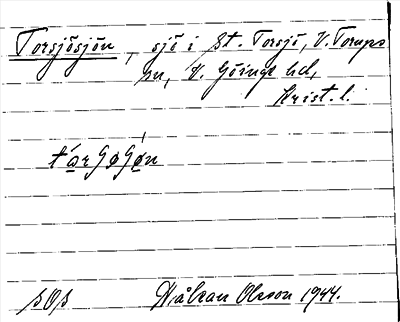 Torsjösjön, sjö i St. Torsjö, V. Torups
sn, V. Göinge hd,
Krist. l.
Håkan Olsson 1944.